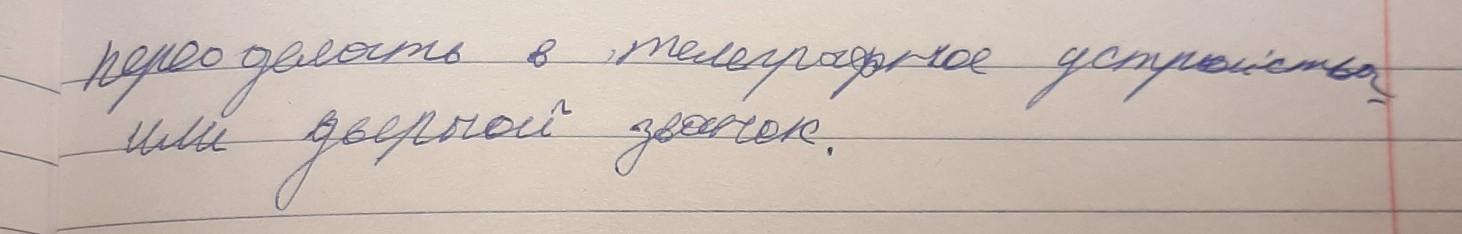 перео делать в телеграфное устройства
или дверной звонок.